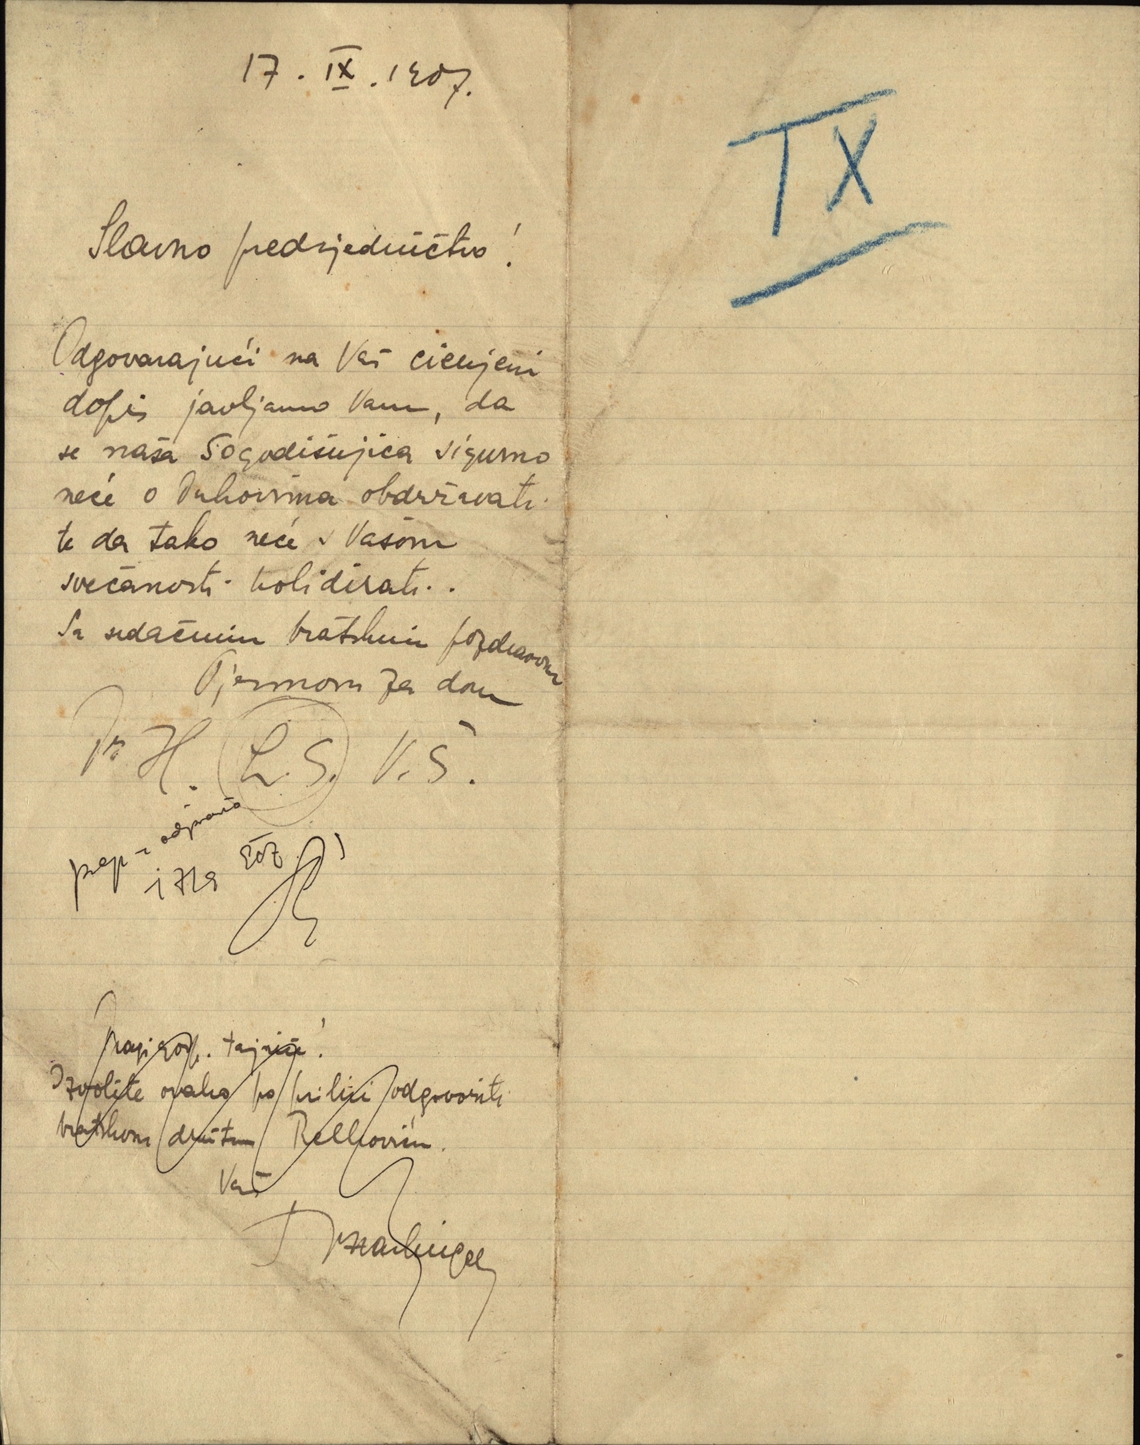 17. IX. 1907.
IX
Slavno predsjedničtvo!
Odgovarajući na Vaš cienjeni
dopis javljamo Vam, da
se naša 50godišnjica sigurno
neće o Duhovima obdržavati
te da tako neće s Vašom
svečanosti kolidirati.
Sa srdačnim bratskim pozdravom
Pjesmom za dom
Dr H. L.S. V.Š.
prep. i odpravio
17/9 907
gosp. tajniče!
Izvolite ovako po prilici odgovoriti
bratskom društvu
Vaš